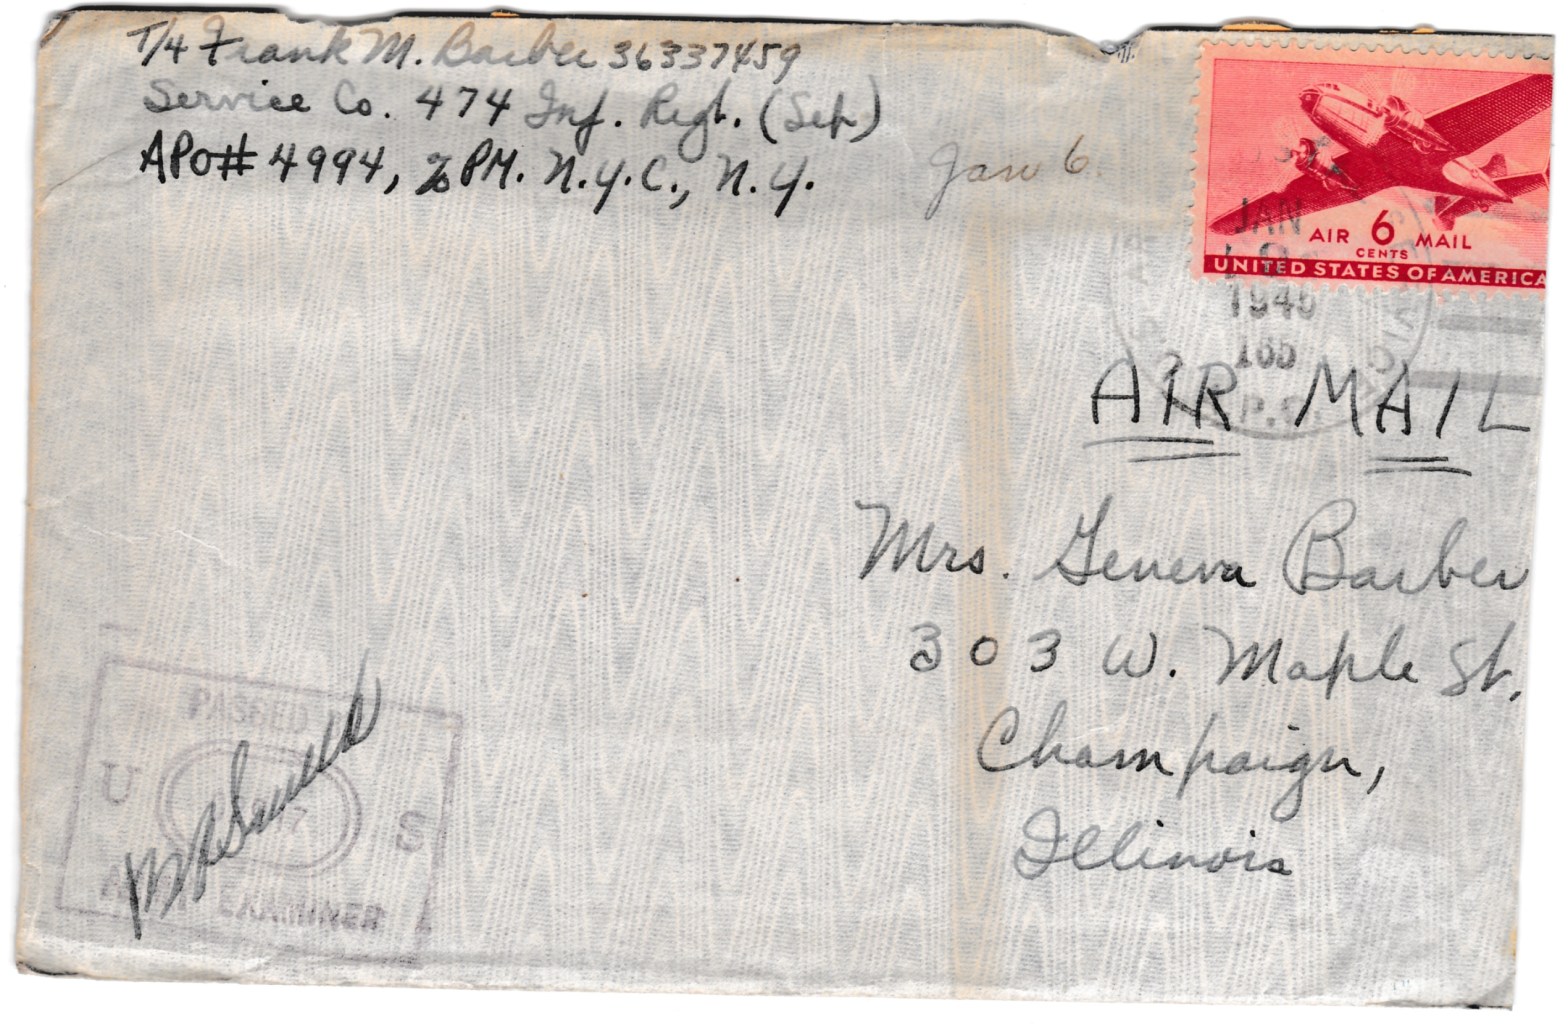 T/4 Frank M. Barber 36337459
Service Co. 474 Inf. Regt. (Sep)
APO# 4994, % PM. N.Y.C., N.Y.
Jan 6
AIR 6 MAIL
CENTS
UNITED STATES OF AMERICA
JAN
1945
165
P.O.
AIR MAIL
Mrs. Geneva Barber
303 W. Maple St,
Champaign,
Illinois
PASSED
U S
EXAMINER